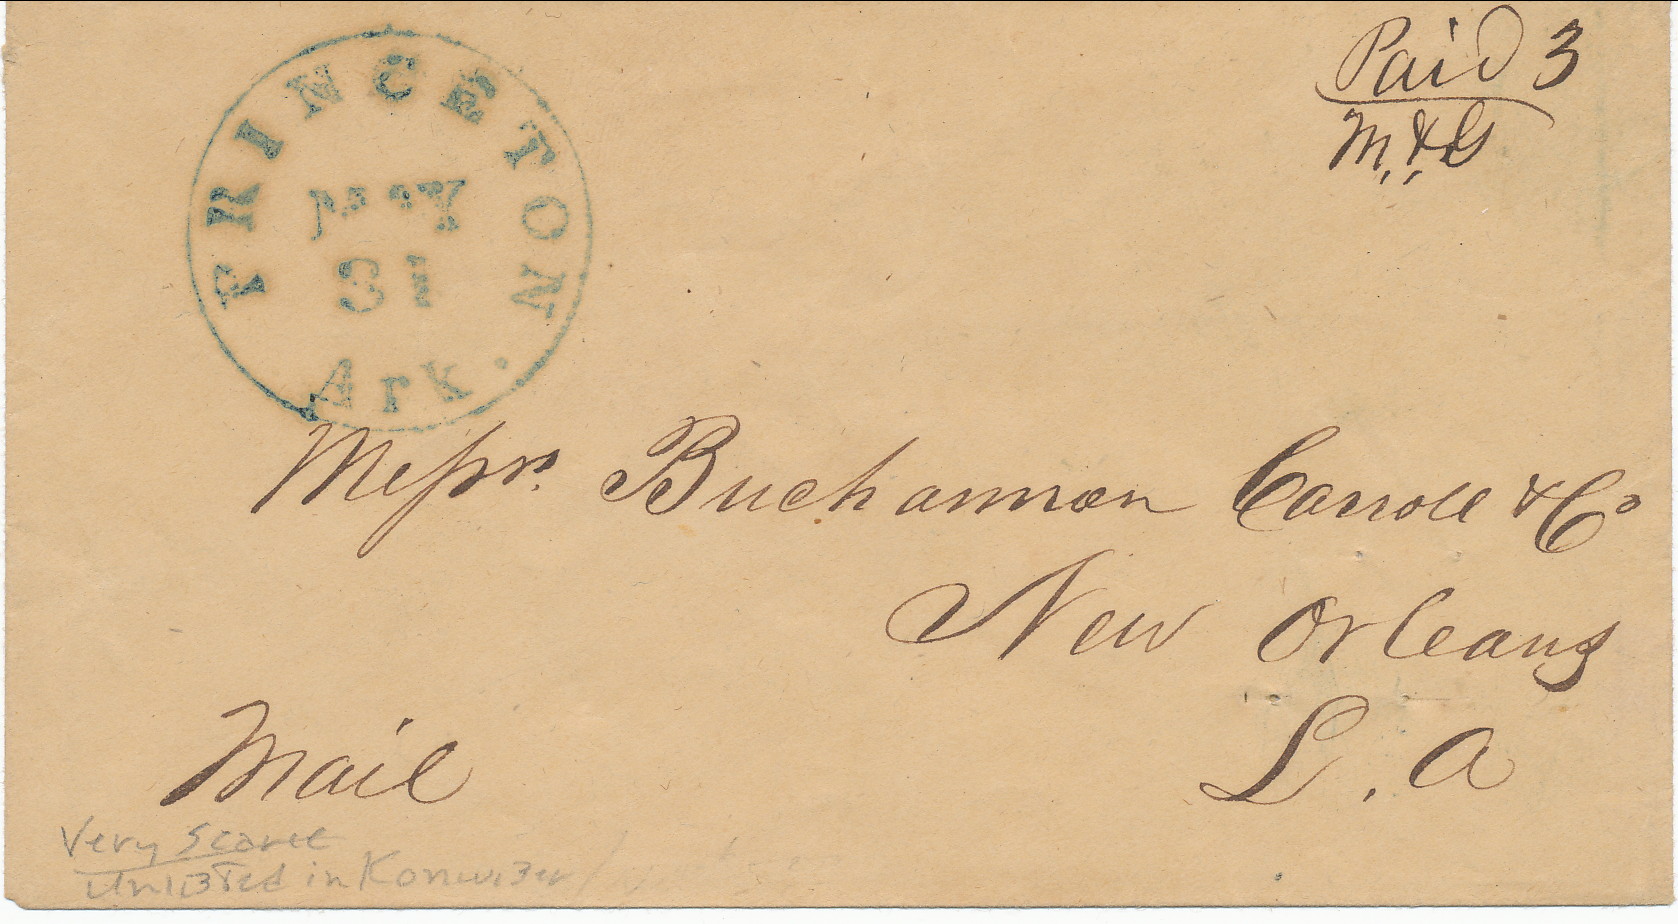 PRINCETON
MAY
31
Ark.
Paid 3
M. & G
Messrs. Buchannan Carroll & Co
New Orleans
L. A
Mail
Very Scarce
Unlisted in Konwiser